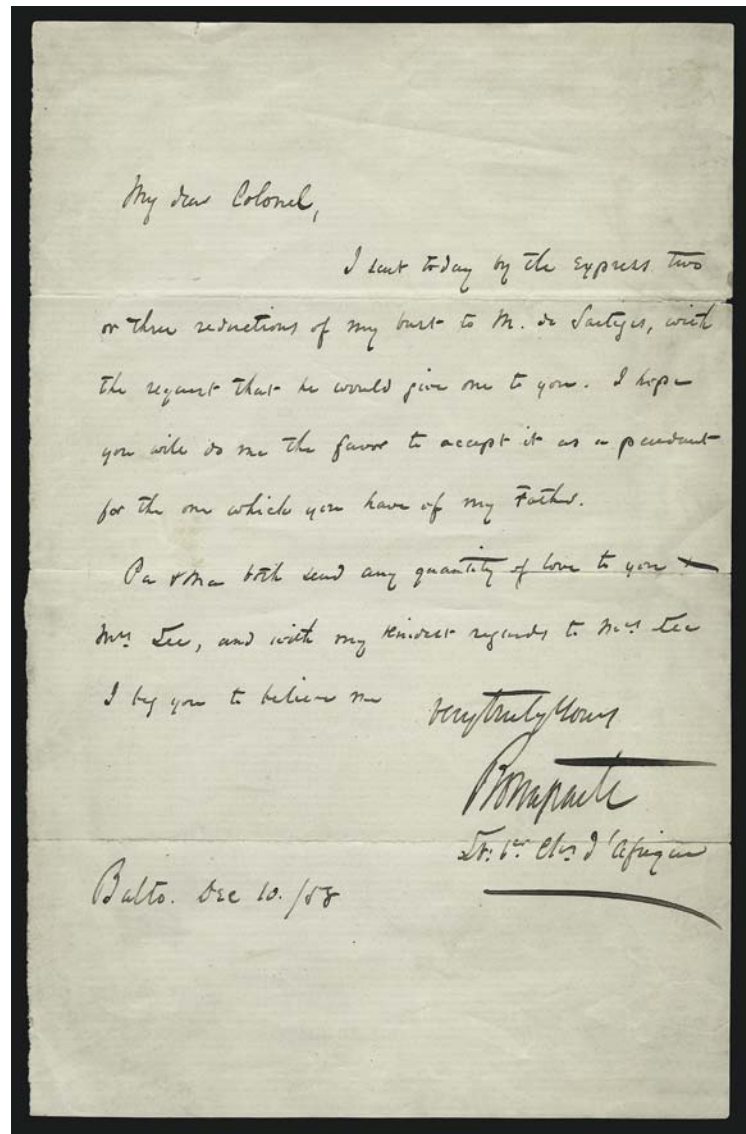 My dear Colonel,
I sent today by the express two
or three reductions of my bust to M. de Sartiges, with
the request that he would give one to you. I hope
you will do me the favor to accept it as a pendant
for the one which you have of my Father.
Pa & Ma both send any quantity of love to you &
Mrs Lee, and with my kindest regards to Mrs Lee
I beg you to believe me
very truly Yours
Bonaparte
Lt. 1er Chrs d'Afrique
Balto. Dec 10. /58